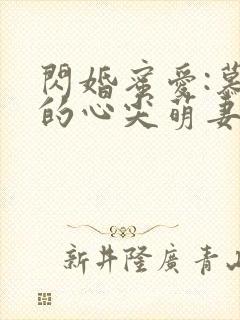 閃婚蜜愛:慕
的心尖萌妻
新井隆廣 青山